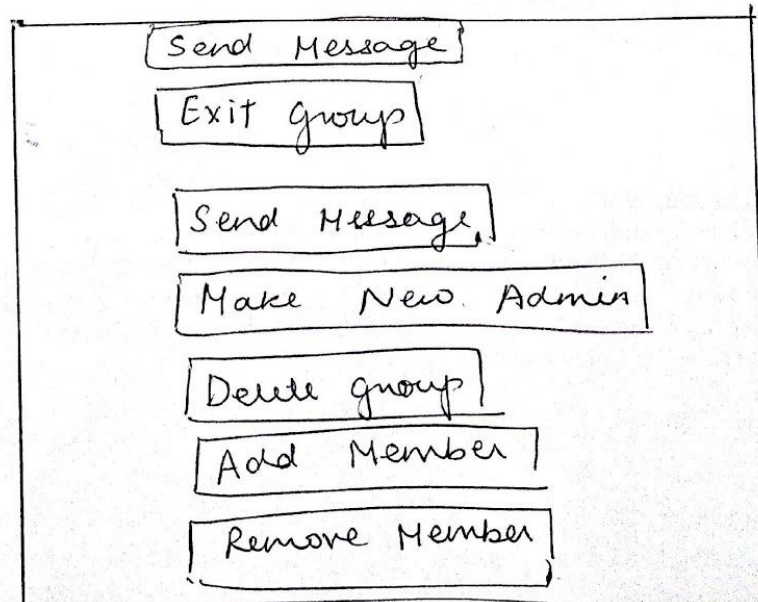 Send Message
Exit group
Send Message
Make New Admin
Delete group
Add Member
Remove Member